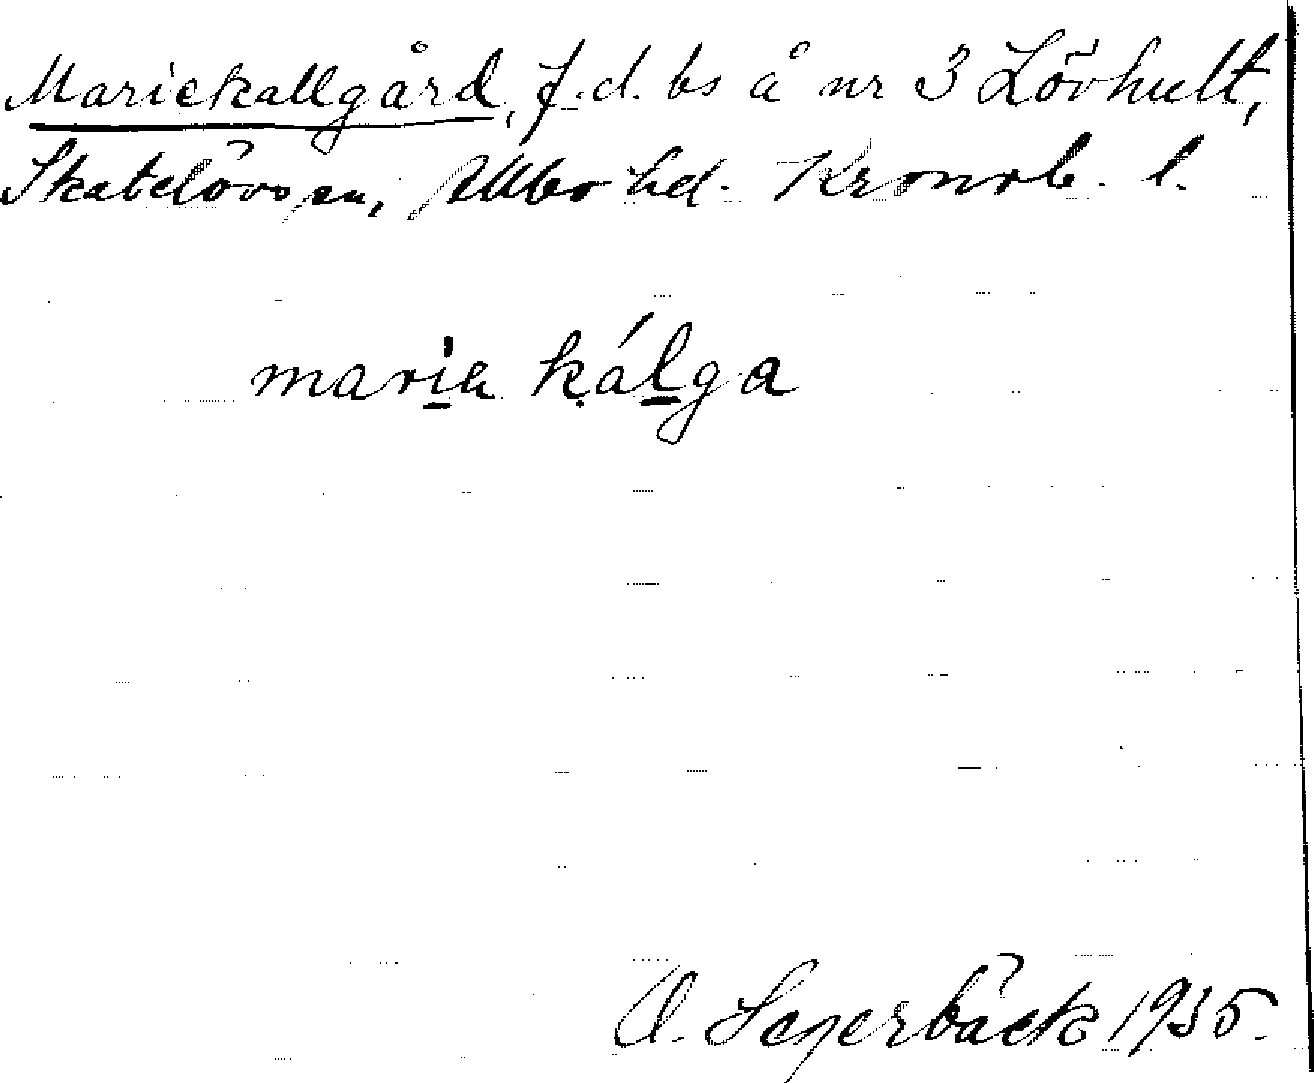 Mariekallgård, f.d. bs å nr 3 Lövhult,
Skatelövs sn, Allbo hd. Kronob. l.
marıa kálga
O. Segerbäck 1935.